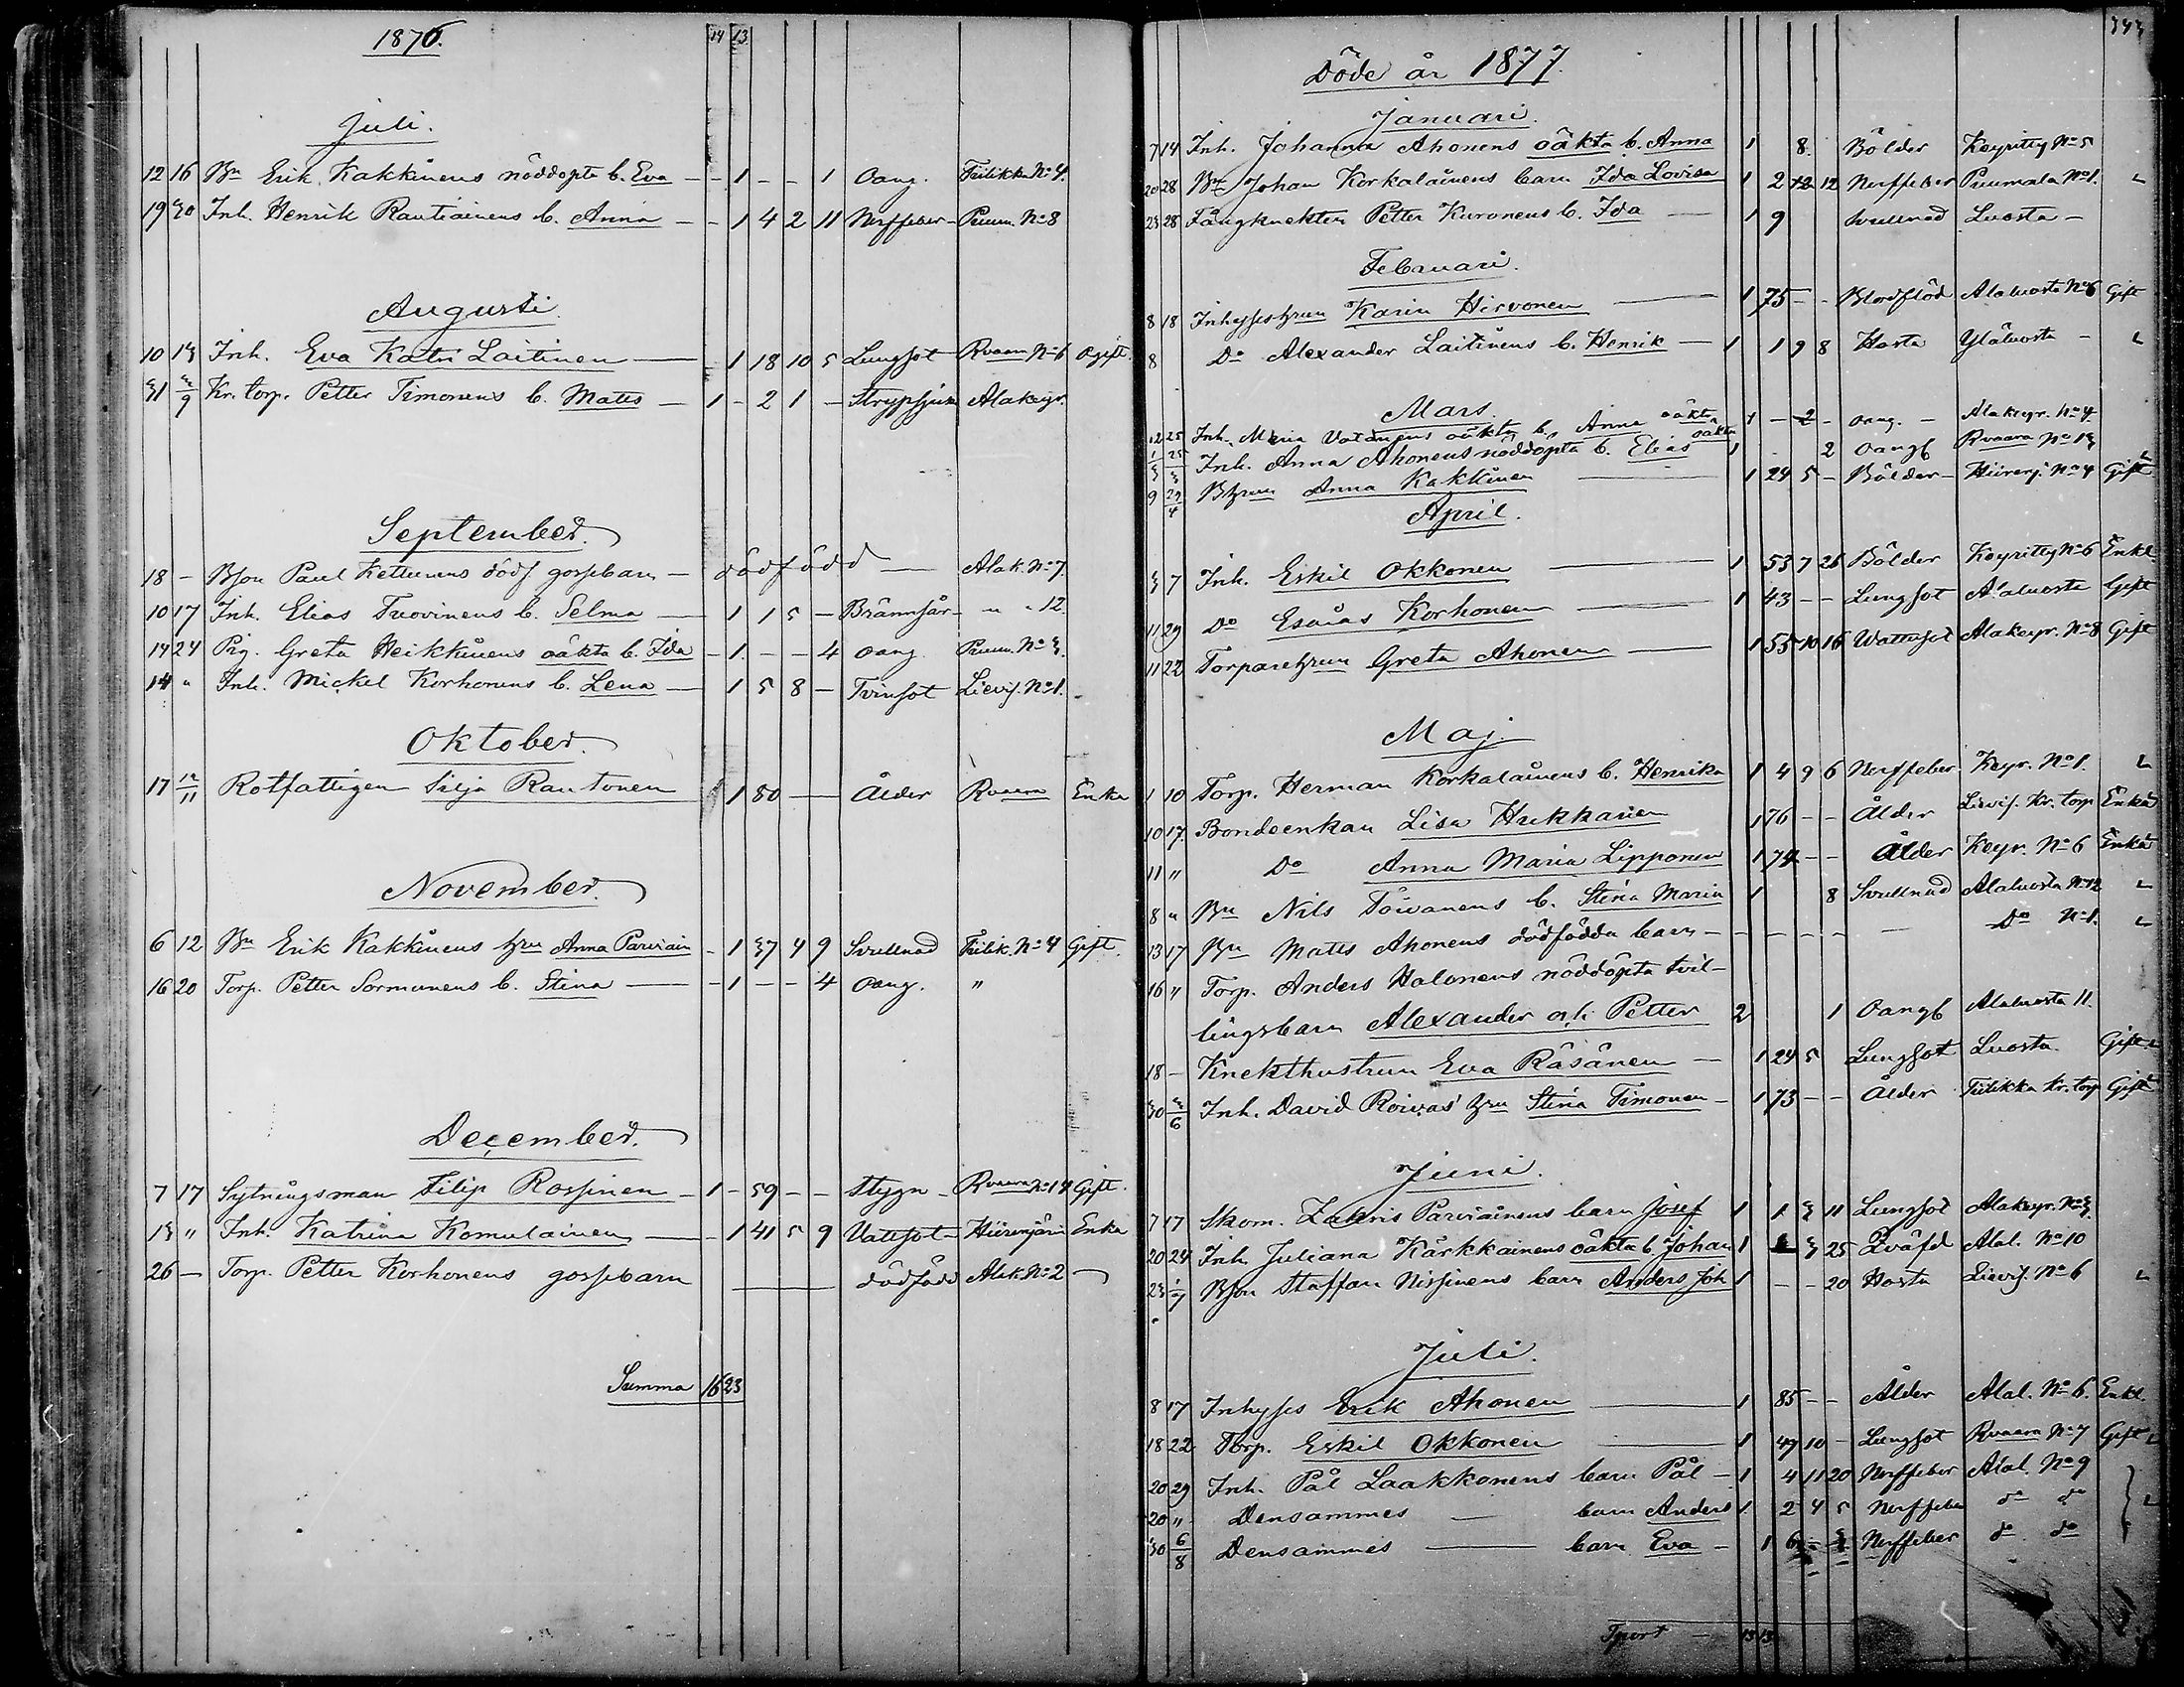 1876.
14 13
Juli.
12 16 Bn Erik Kakkinens nöddöpta b. Eva - 1 - - 1 Oang. Tiilikka No 4.
19 30 Inh. Henrik Rautiainens b. Anna - 1 4 2 11 Nerffeber Puum. No 8
Augusti
10 13 Inh. Eva Katri Laitinen 1 18 10 5 Lungsot Rvaara No 6 Ogift.
31 3/9 Kr. torp. Petter Timonens b. Matts - 1 - 2 1 - Strypsjuka Alakeyr.
September.
18 - Bson Paul Kettunens dödf. gossebarn - dödfödd Alak. No 7.
10 17 Inh. Elias Tuovinens b. Selma 1 1 5 - Brännsår " " 12.
14 24 Pig. Greta Heikkinens oäkta b. Ida - 1. - - 4 oang. Puum. No 3.
14 " Inh. Mickel Korhonens b. Lena 1 5 8 - Tvinsot Lievis. No 1.
Oktober.
17 12/11 Rotfattigen Silja Rautonen 1 80 - Ålder Rvaara Enka
November.
6 12 Bn Erik Kakkinens hru Anna Parviain - 1 37 4 9 Svullnad Tiilik. No 4 Gift.
16 20 Torp. Petter Sormunens b. Stina - 1 - - 4 oang. "
December.
7 17 Sytningsman Filip Rossinen - 1 - 59 - - Stygn - Rvaara No 14 Gift.
13 " Inh. Katrina Komulainen - 1 41 5 9 Vattsot - Hiirenjärvi Enka
26 - Torp. Petter Korhonens gossebarn dödfödd Alak. No 2
Summa 16 23
343
Döde år 1877.
Januari.
7 14 Inh. Johanna Ahonens oäkta b. Anna 1 8. Bölder Keyritty No 5
20 28 Bn Johan Korkalainens barn Ida Lovisa 1 2 12 Nerffeber Puumala No 1.
23 28 Fångknekten Petter Kuronens b. Ida 1 9 Svullnad Luosta -
Februari.
8 18 Inhyseshrun Karin Hirvonen 1 75 - - Blodflöd Alaluosta No 6 Gift
8 Do Alexander Laitinens b. Henrik 1 1 9 8 Hosta Yläluosta -
Mars.
12 25 Inh. Maria oäkta b. Anna oäkta 1 - 2 - oang. - Alakeyr. No 4
1/3 25/3 Inh. Anna Ahonens nöddöpta b. Elias oäkta 1 2 oangf Rvaara No 13
9 29/4 Bhrun Anna Kakkinen 1 24 5 - Bölder - Hiirenj. No 4 Gift
April.
3 7 Inh. Eskil Okkonen 1 53 7 26 Bölder Keyritty No 6 Enkl.
11 29 Do Esaias Korhonen 1 43 - - Lungsot Alaluosta Gift
11 22 Torparehrun Greta Ahonen 1 55 10 16 Wattusot Alakeyr. No 8 Gift
Maj.
1 10 Torp. Herman Korkalainens b. Henrika 1 4 9 6 Nerffeber Keyr. No 1.
10 17. Bondeenkan Lisa Hukkanen 1 76 - - Ålder Lievis. Kr. torp Enka
11 " Do Anna Maria Lipponen 1 74 - - Ålder Keyr. No 6 Enka
8 " Bn Nils Toivanens b. Stina Maria 1 8 Svullnad Alaluosta No 12
13 17 Bn Matts Ahonens dödfödda barn - - - - - - Do No 1.
16 " Torp. Anders Halonens nöddöpta tvil-
lingsbarn Alexander och Petter 2 1 Oangf Alaluosta 11.
18 - Knekthustrun Eva Räsänen 1 24 5 Lungsot Luosta. Gift
30 3/6 Inh. David Roivas' hru Stina Timonen - 1 73 - - Ålder Tiilikka Kr. torp Gift
Juni.
7 17 Skom. Zakris Parviainens barn Josef 1 1 3 11 Lungsot Alakeyr. No 3.
20 24 Inh. Juliana Kärkkainens oäkta b. Johan 1 3 25 Qväfd Alal. No 10
23 1/7 Bson Staffan Nissinens barn Anders Joh 1 - - 20 Hosta Lievis. No 6
Juli.
8 17 Inhyses Erik Ahonen 1 85 - - Ålder Alal. No 6. Enkl.
18 22 Torp. Eskil Okkonen 1 49 10 - Lungsot Rvaara No 7 Gift
20 29 Inh. Pål Laakkonens barn Pål - 1 4 11 20 Nerffeber Alal. No 9
20 " Densammes barn Anders 1 2 4 5 Nerffeber do do
30 6/8 Densammes barn Eva - 1 6 Nerffeber do do
Tport - 13 13